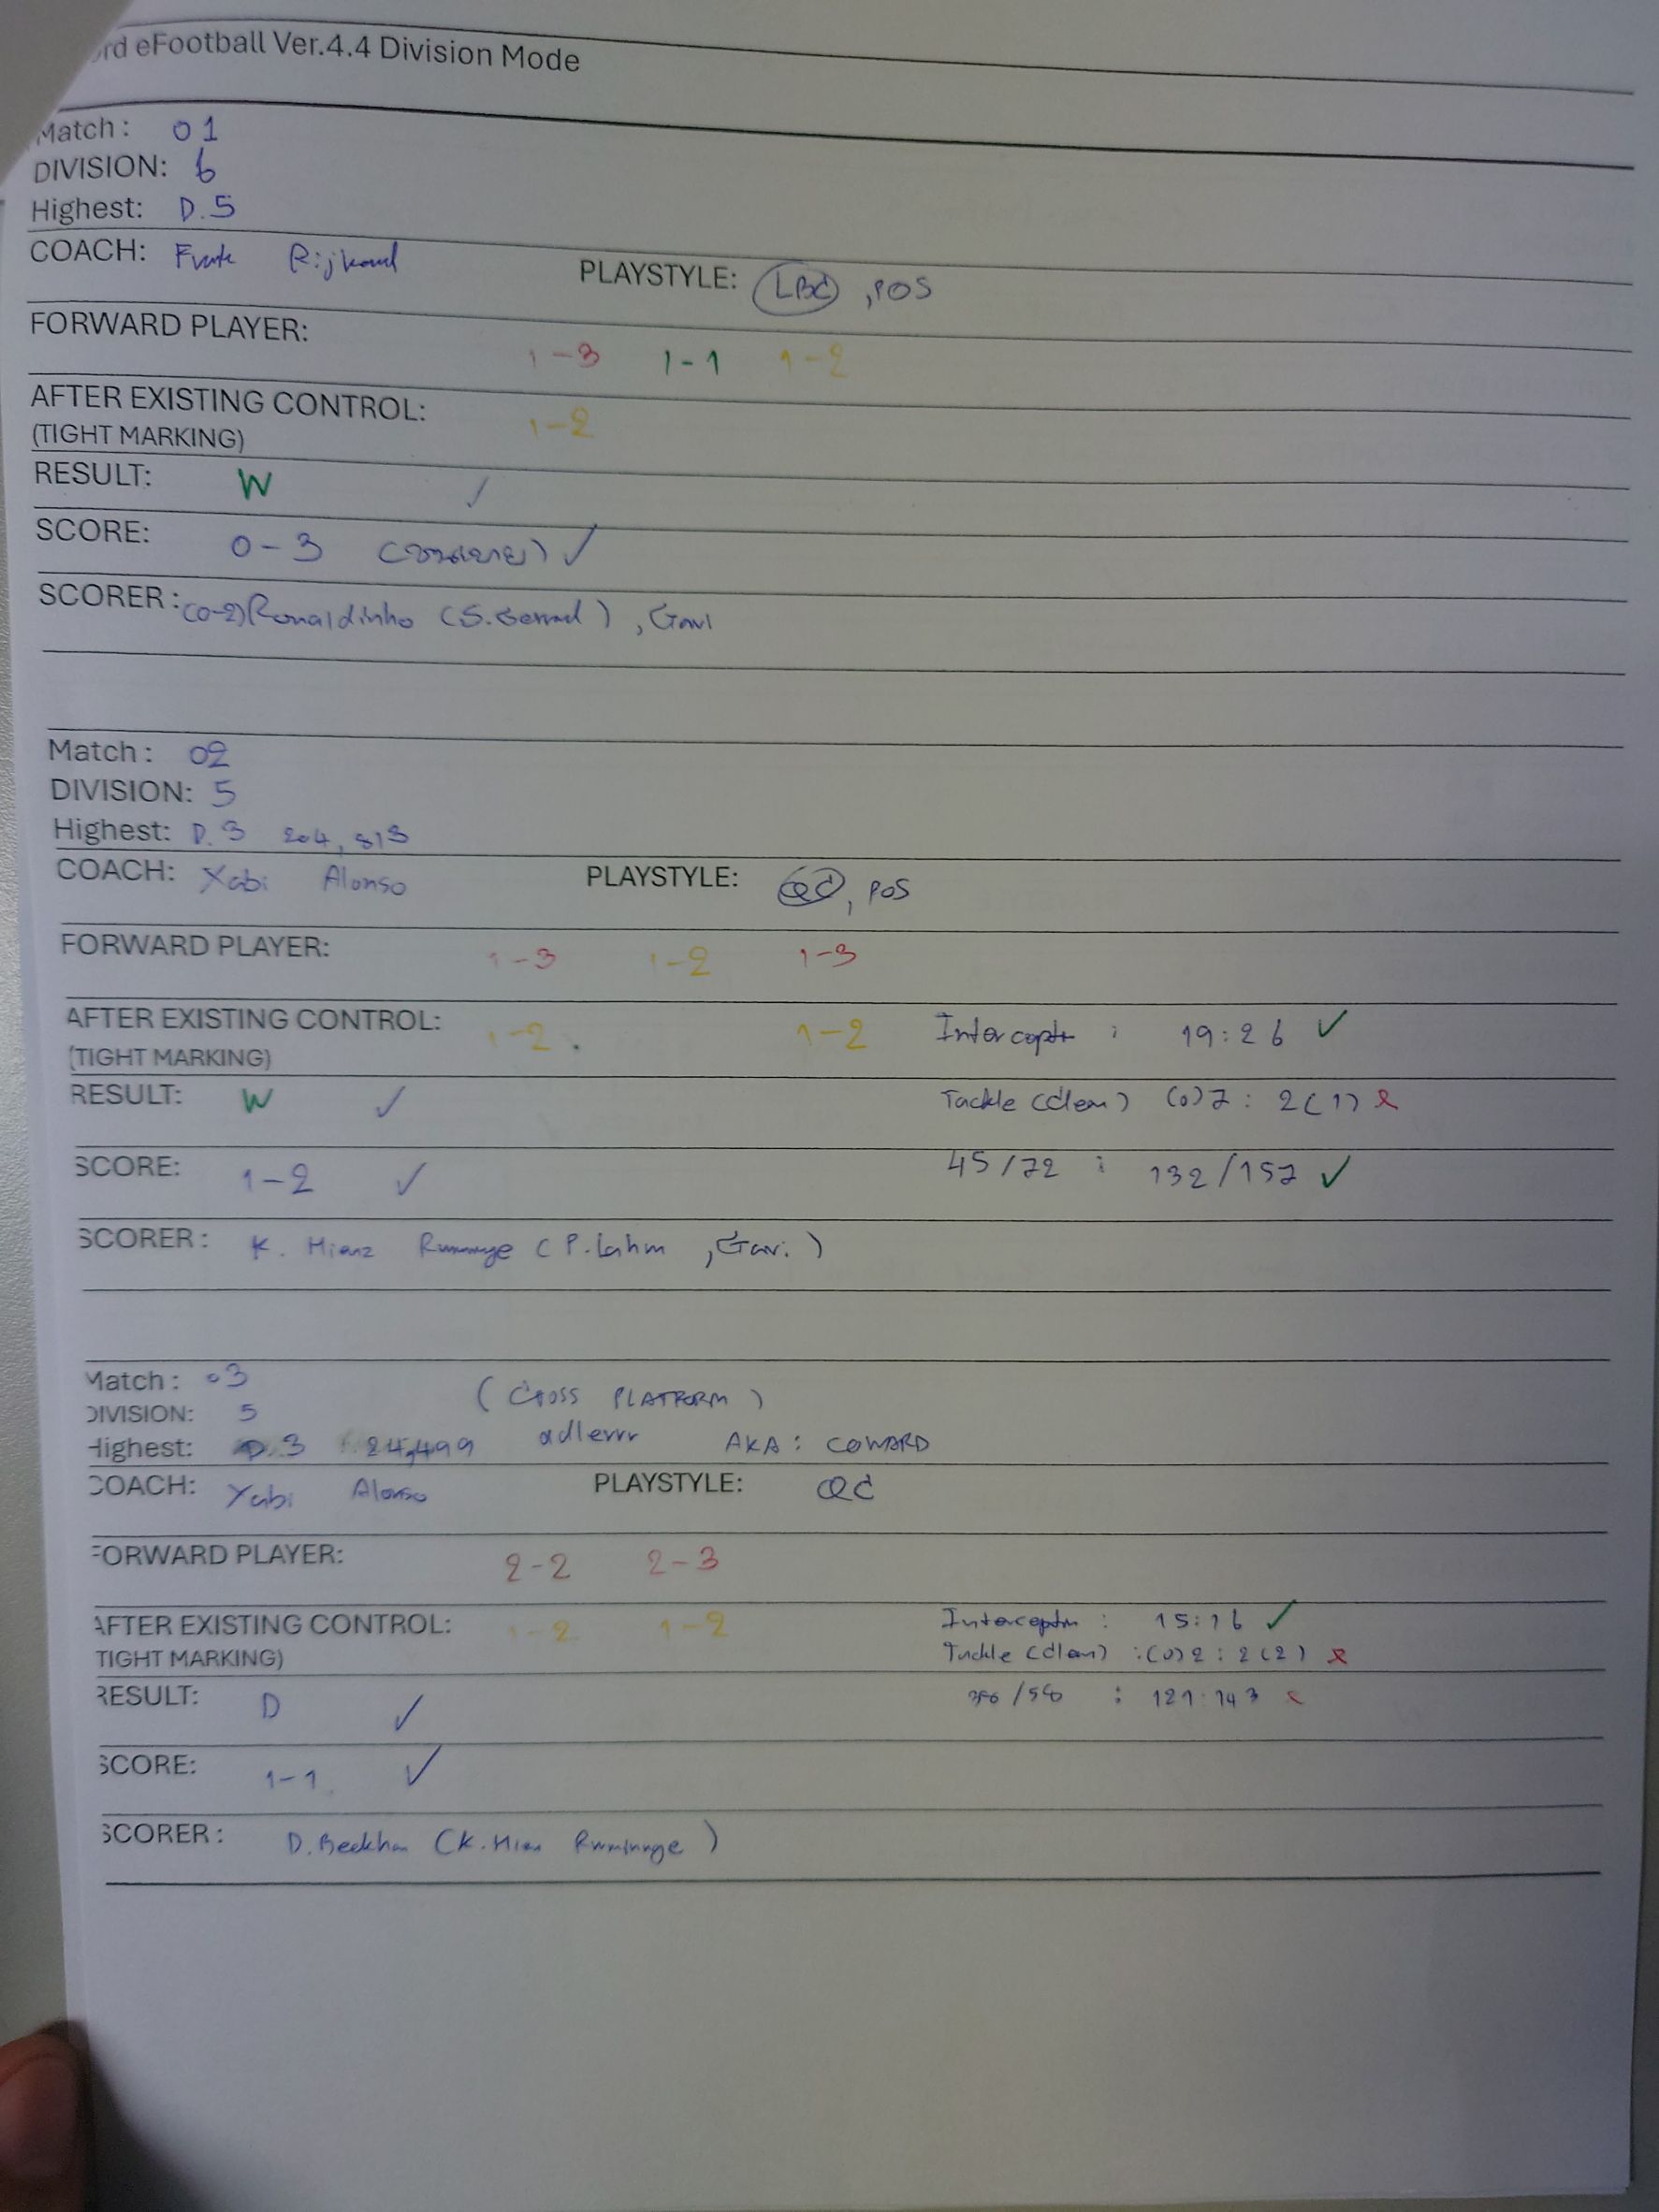 rd eFootball Ver.4.4 Division Mode
Match : 01
DIVISION: 6
Highest: D.5
COACH: Rijkaard PLAYSTYLE: LBC , POS
FORWARD PLAYER: 1-3 1-1 1-2
AFTER EXISTING CONTROL: 1-2
(TIGHT MARKING)
RESULT: W ✓
SCORE: 0-3 ✓
SCORER : (0-2) Ronaldinho (S. Gerrard) , Gavi
Match : 02
DIVISION: 5
Highest: D.3 204,813
COACH: Xabi Alonso PLAYSTYLE: QC , POS
FORWARD PLAYER: 1-3 1-2 1-3
AFTER EXISTING CONTROL: 1-2 1-2 Intercept : 19:26 ✓
(TIGHT MARKING)
RESULT: W ✓ Tackle (clean) (0)7 : 2(1) x
SCORE: 1-2 ✓ 45/72 : 132/157 ✓
SCORER : K. Hienz Rummnge (P. Lahm , Gavi)
Match : 03 (CROSS PLATFORM)
DIVISION: 5
Highest: D.3 24,499 adlerrr AKA : COWARD
COACH: Xabi Alonso PLAYSTYLE: QC
FORWARD PLAYER: 2-2 2-3
AFTER EXISTING CONTROL: 1-2 1-2 Intercept : 15:16 ✓
TIGHT MARKING) Tackle (clean) : (0)2 : 2(2) x
RESULT: D ✓ : 121:143 x
SCORE: 1-1 ✓
SCORER : D. Beckham (K. Hien Rummnge)